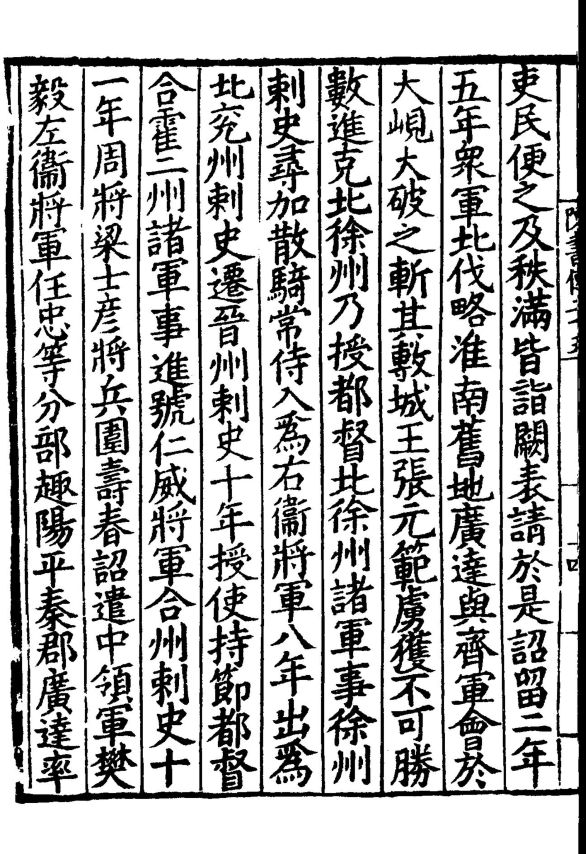 吏民便之及秩滿皆詣闕表請於是詔留二年
五年衆軍北伐略淮南舊地廣達與齊軍會於
大峴大破之斬其敷城王張元範虜獲不可勝
數進克北徐州乃授都督北徐州諸軍事徐州
刺史尋加散騎常侍入爲右衞將軍八年出爲
北兗州刺史遷晉州刺史十年授使持節都督
合霍二州諸軍事進號仁威將軍合州刺史十
一年周將梁士彥將兵圍壽春詔遣中領軍樊
毅左衞將軍任忠等分部趣陽平秦郡廣達率